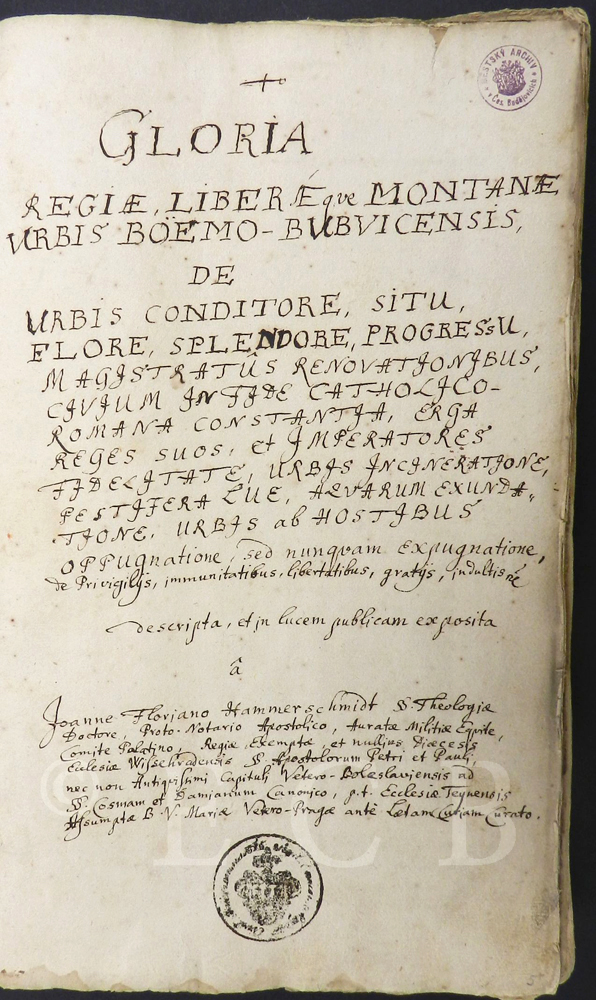 MĚSTSKÝ ARCHIV
v Čes. Budějovicích
GLORIA
REGIÆ, LIBERÆque MONTANÆ
VRBIS BOËMO-BUBVICENSIS,
DE
VRBIS CONDITORE, SITU,
FLORE, SPLENDORE, PROGRESSU,
MAGISTRATÛS RENOVATIONIBUS,
CIVIUM IN FIDE CATHOLICO-
ROMANA CONSTANTIA, ERGA
REGES SUOS, et IMPERATORES
FIDELITATE, URBIS INCINERATIONE,
PESTIFERA LUE, AQVARUM EXUNDA-
TIONE, URBIS ab HOSTIBUS
OPPUgnatione, sed nunquam Expugnatione,
de Privigilijs, immunitatibus, libertatibus, gratijs, indultisqve
descripta, et in lucem publicam exposita
â
Joanne Floriano Hammerschmidt SS. Theologiæ
Doctore, Proto-Notario Apostolico, Auratæ Militiæ Equite,
Comite Palatino, Regiæ Exemptæ, et nullius Diæcesis
Ecclesiæ Wissehradensis SS. Apostolorum Petri et Pauli,
nec non Antiquissimi Capituli Vetero-Boleslaviensis ad
SS. Cosmam et Damianum Canonico, p.t. Ecclesiæ Teynensis
Assumptæ B. V. Mariæ Vetero-Pragæ antè Lætam Curiam Curato.
© ECB
5